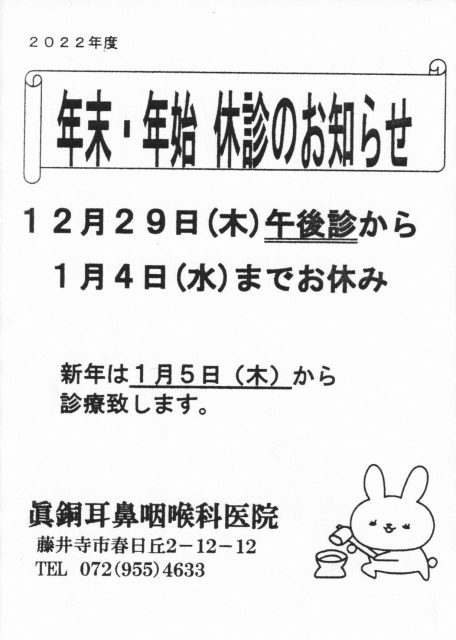 ２０２２年度
年末・年始 休診のお知らせ
１２月２９日（木）午後診から
１月４日（水）までお休み
新年は１月５日（木）から
診療致します。
眞銅耳鼻咽喉科医院
藤井寺市春日丘２－１２－１２
TEL 072(955)4633